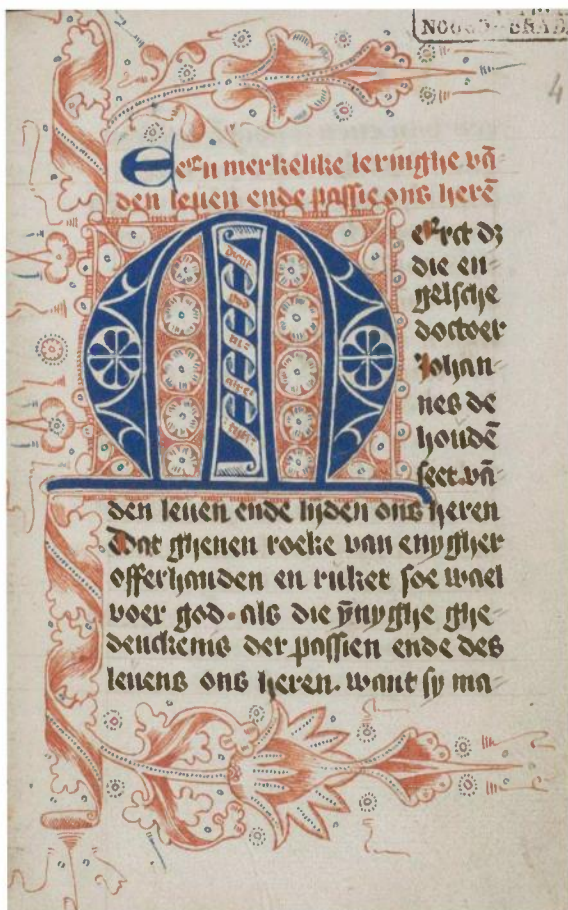 NOORD-BRAB
4
Eeen merkelike leringhe vā
den leuen ende passie ons herē
Merct dz
die en
gelsche
doctoer
Johan
nes de
houdē
seet. vā
den leuen ende lijden ons heren
Dat ghenen rocke van enygher
offerhanden en ruket soe wael
voer god. als die ÿnyghe ghe
denckenis der passien ende des
leuens ons heren. want sy ma
Dient
god
al
tijt